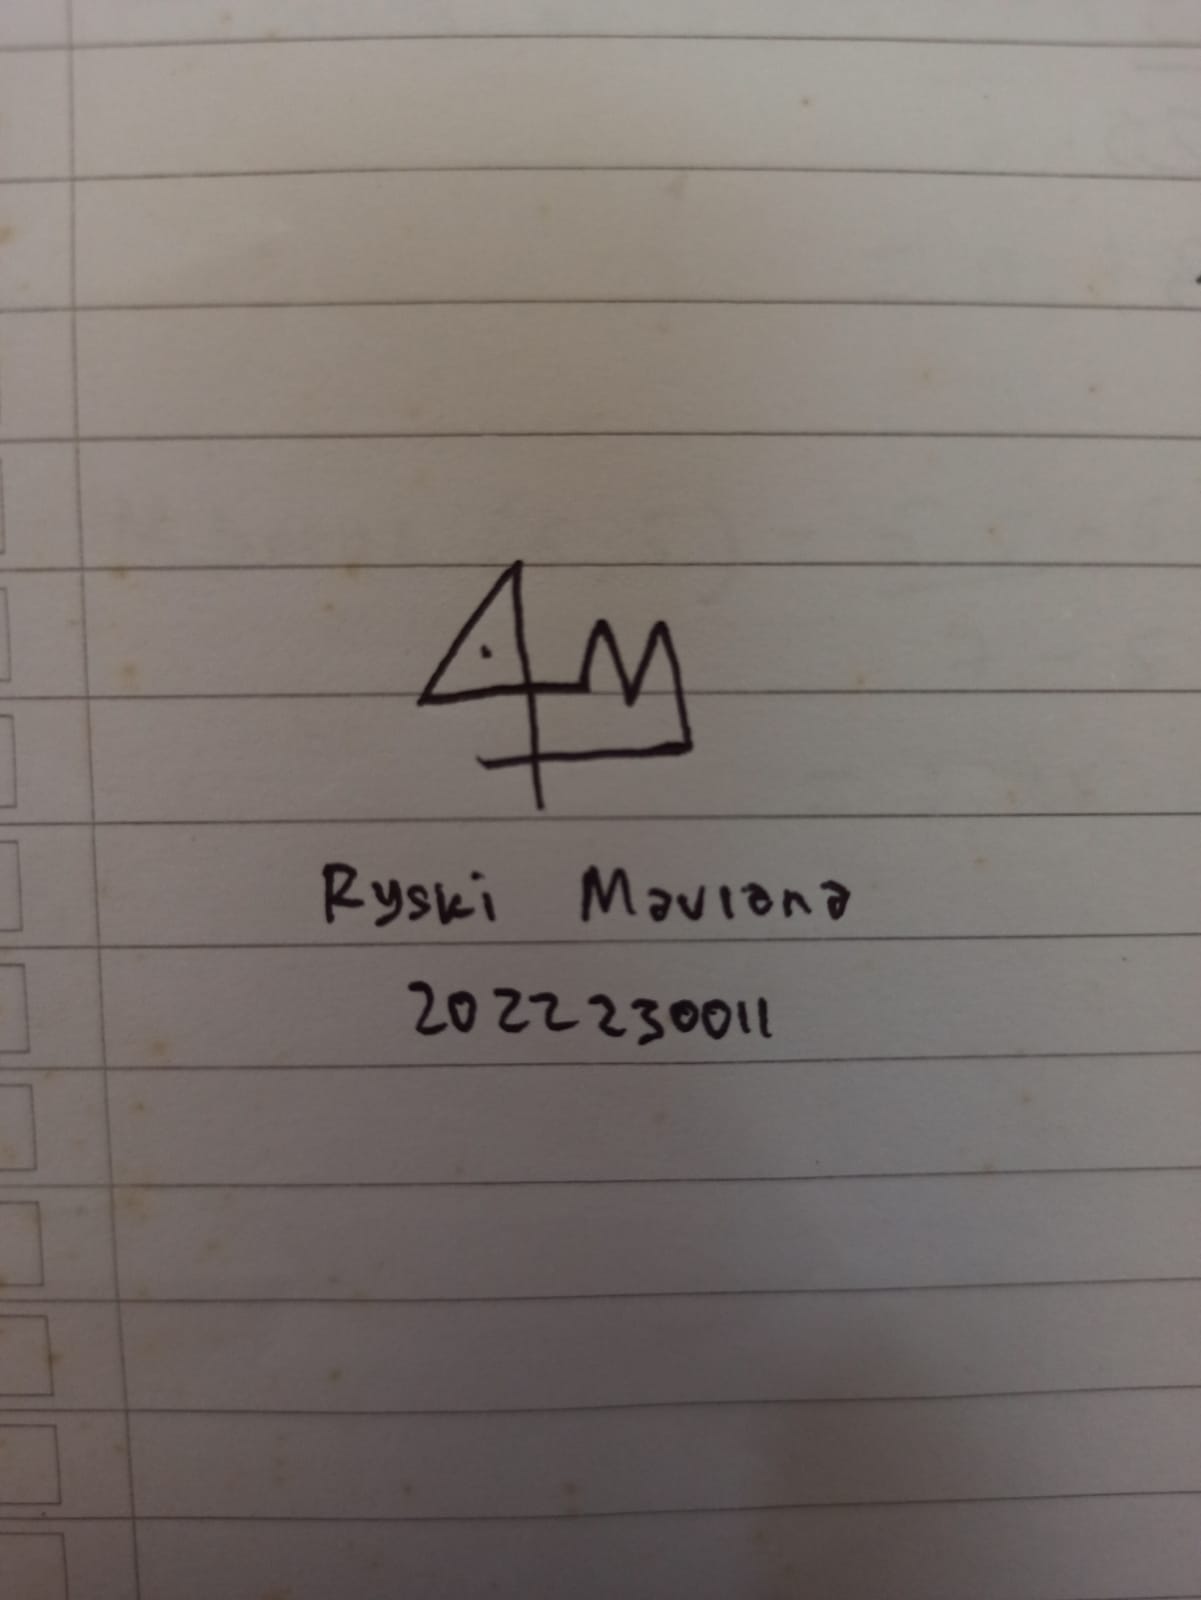 Ryski Maulana
2022230011